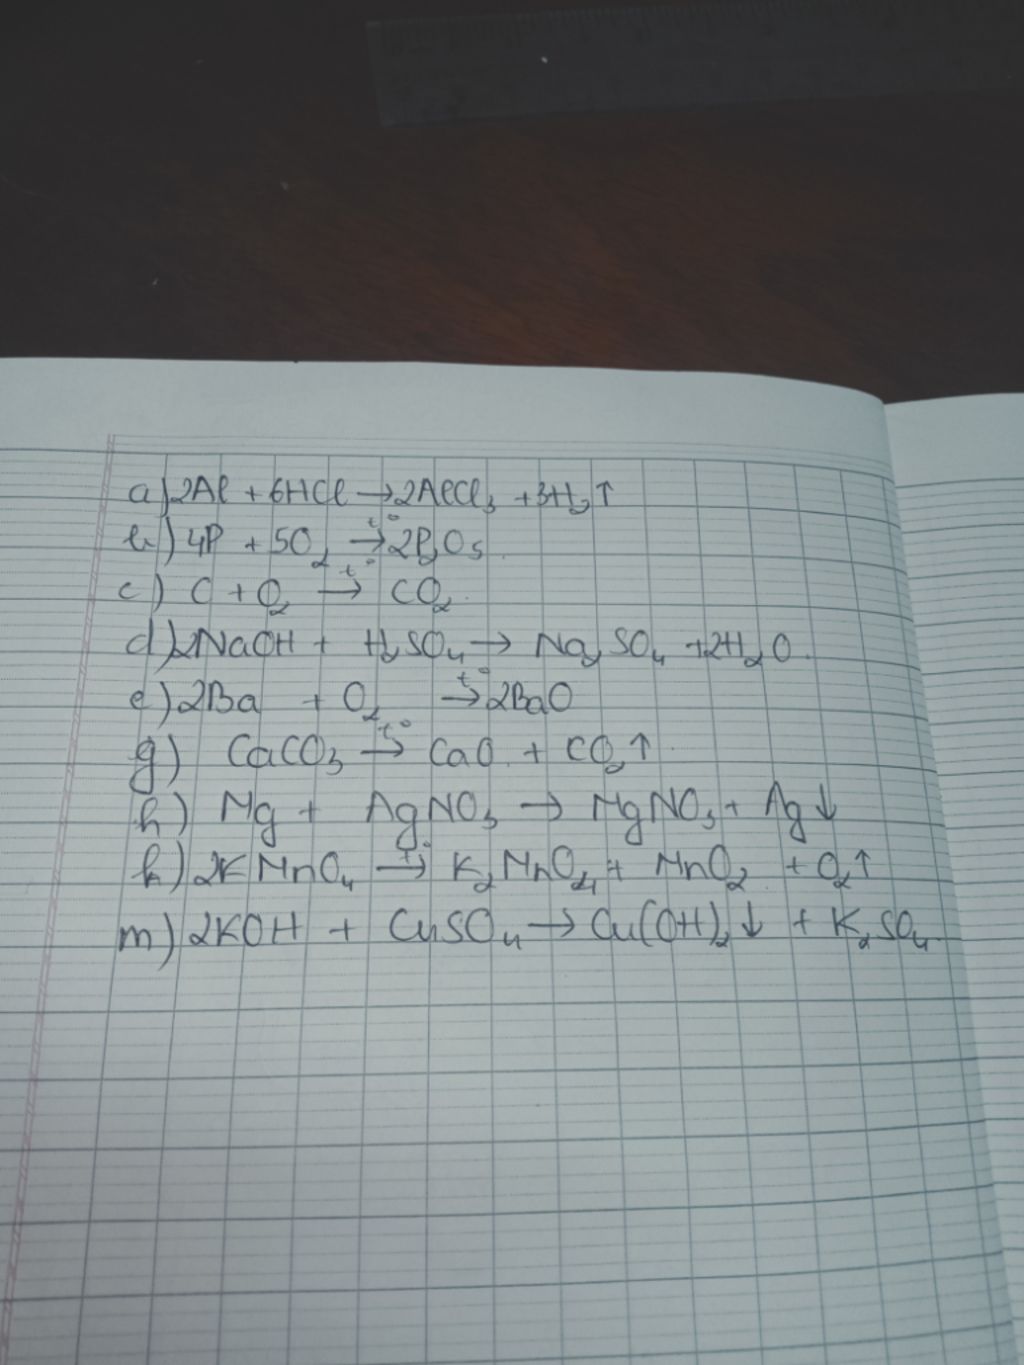 a) 2Al + 6HCl → 2AlCl₃ + 3H₂↑
b) 4P + 5O₂ →(t°) 2P₂O₅.
c) C + O₂ →(t°) CO₂.
d) 2NaOH + H₂SO₄ → Na₂SO₄ + 2H₂O.
e) 2Ba + O₂ →(t°) 2BaO
g) CaCO₃ →(t°) CaO + CO₂↑.
h) Mg + AgNO₃ → MgNO₃ + Ag↓
k) 2KMnO₄ →(t°) K₂MnO₄ + MnO₂ + O₂↑
m) 2KOH + CuSO₄ → Cu(OH)₂↓ + K₂SO₄.